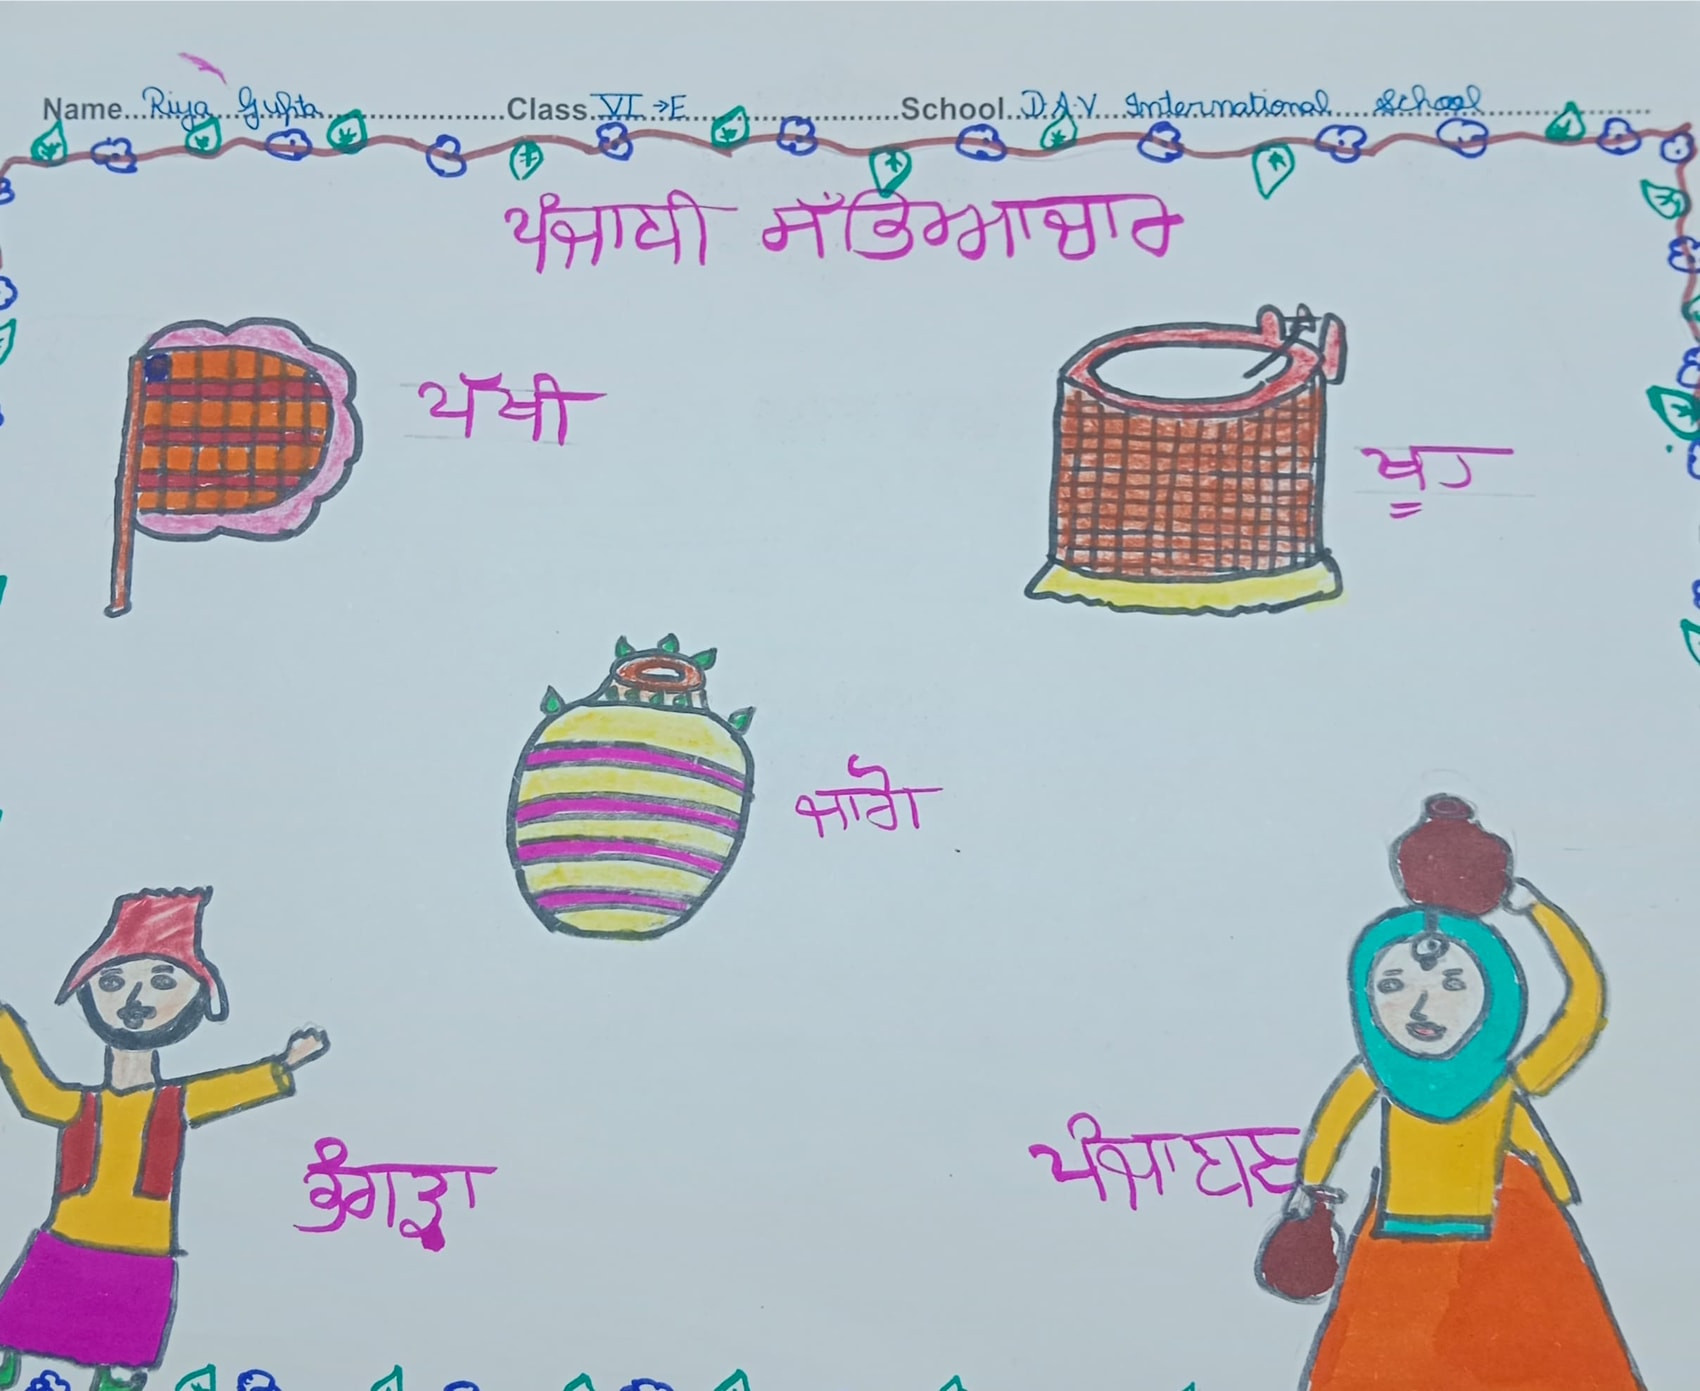 Name...Riya Gupta...Class VI → E...School...D.A.V International School
ਪੰਜਾਬੀ ਸੱਭਿਆਚਾਰ
ਪੱਖੀ
ਖੂਹ
ਜਾਗੋ
ਭੰਗੜਾ
ਪੰਜਾਬਣ